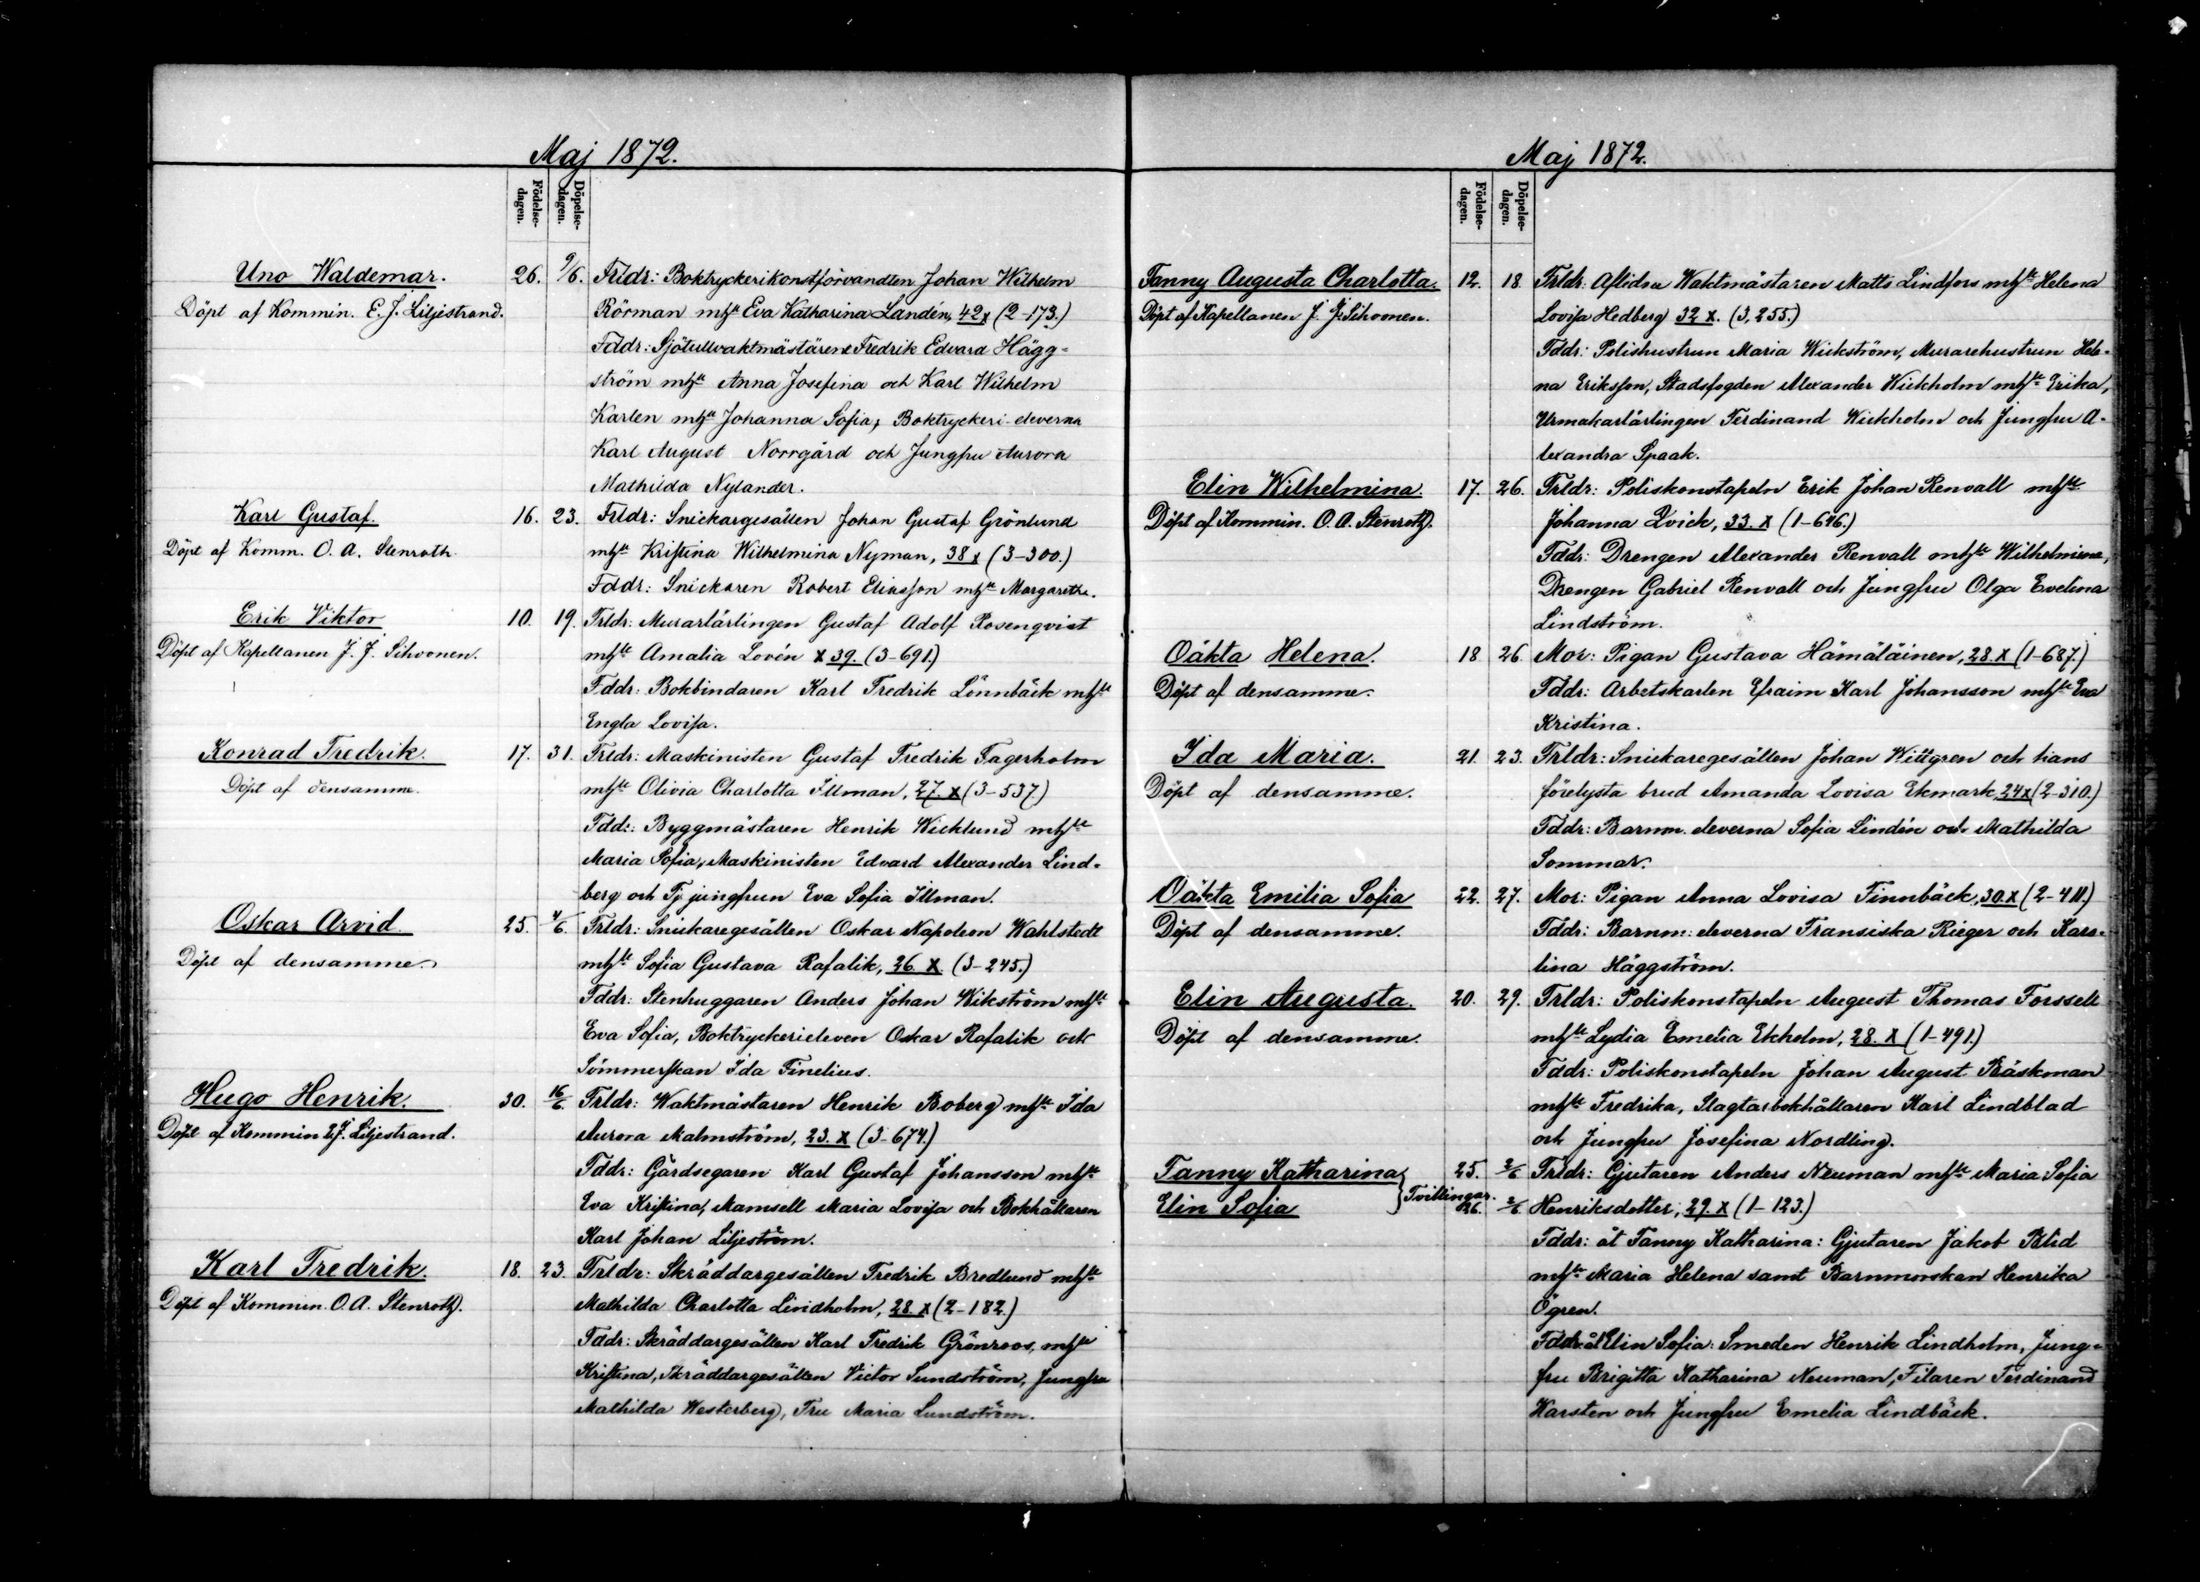 Maj 1872.
Födelse-dagen.
Döpelse-dagen.
Uno Waldemar. 26. 9/6. Frldr: Boktryckerikonstförvandten Johan Wilhelm
Döpt af Kommin. E. J. Liljestrand. Rörman mhst Eva Katharina Landén, 42 x (2-173.)
Fddr: Sjötullvaktmästärene Fredrik Edvard Hägg-
ström mhst Anna Josefina och Karl Wilhelm
Karlen mhst Johanna Sofia, Boktryckeri-eleverna
Karl August Norrgård och Jungfru Aurora
Mathilda Nylander.
Karl Gustaf. 16. 23. Frldr: Snickargesällen Johan Gustaf Grönlund
Döpt af Komm. O. A. Stenroth. mhst Kristina Wilhelmina Nyman, 38 x (3-300.)
Fddr: Snickaren Robert Eliasson mhst Margaretha.
Erik Viktor 10. 19. Frldr: Murarlärlingen Gustaf Adolf Rosenqvist
Döpt af Kapellanen J. J. Sihvonen. mhst Amalia Lovén x 39. (3-691.)
Fddr: Bokbindaren Karl Fredrik Lönnbäck mhst
Engla Lovisa.
Konrad Fredrik. 17. 31. Frldr: Maskinisten Gustaf Fredrik Fagerholm
Döpt af densamme. mhst Olivia Charlotta Illman, 27. x (3-537.)
Fddr: Byggmästaren Henrik Wicklund mhst
Maria Sofia, Maskinisten Edvard Alexander Lind-
berg och Tj. jungfrun Eva Sofia Illman.
Oskar Arvid 25. 4/6. Frldr: Snickaregesällen Oskar Napoleon Wahlstedt
Döpt af densamme. mhst Sofia Gustava Rafalik, 26. X. (3-245.)
Fddr: Stenhuggaren Anders Johan Wikström mhst
Eva Sofia, Boktryckerieleven Oskar Rafalik och
Sömmerskan Ida Finelius.
Hugo Henrik. 30. 16/6. Frldr: Waktmästaren Henrik Boberg mhst Ida
Döpt af Kommin E.J. Liljestrand. Aurora Malmström, 23. x (3-674.)
Fddr: Gårdsegaren Karl Gustaf Johansson mhst
Eva Kristina, Mamsell Maria Lovisa och Bokhållaren
Karl Johan Liljeström.
Karl Fredrik. 18. 23. Frldr: Skräddargesällen Fredrik Bredlund mhst
Döpt af Kommin. O. A. Stenroth. Mathilda Charlotta Lindholm, 28. x (2-182.)
Fddr: Skräddargesällen Karl Fredrik Grönroos, mhst
Kristina, Skräddargesällen Victor Sundström, Jungfru
Mathilda Westerberg, Fru Maria Lundström.
Maj 1872.
Födelse-dagen.
Döpelse-dagen.
Fanny Augusta Charlotta. 12. 18. Frldr: Aflidna Waktmästaren Matts Lindfors mhst Helena
Döpt af Kapellanen J. J. Sihvonen. Lovisa Hedberg 32 x. (3,255.)
Fddr: Polishustrun Maria Wickström, Murarehustrun Hele-
na Eriksson, Stadsfogden Alexander Wickholm mhst Erika,
Urmakarlärlingen Ferdinand Wickholm och Jungfru A-
lexandra Spaak.
Elin Wilhelmina. 17. 26. Frldr: Poliskonstapeln Erik Johan Renvall mhst
Döpt af Kommin. O. A. Stenroth. Johanna Qvick, 33. x (1-646.)
Fddr: Drengen Alexander Renvall mhst Wilhelmina,
Drengen Gabriel Renvall och Jungfru Olga Evelina
Lindström.
Oäkta Helena. 18 26. Mor: Pigan Gustava Hämäläinen, 28. x (1-687.)
Döpt af densamme. Fddr: Arbetskarlen Efraim Karl Johansson mhst Eva
Kristina.
Ida Maria. 21. 23. Frldr: Snickaregesällen Johan Wittgren och hans
Döpt af densamme. förelysta brud Amanda Lovisa Ekmark, 24 x (2-310.)
Fddr: Barnm. eleverna Sofia Lindén och Mathilda
Sommar.
Oäkta Emilia Sofia 22. 27. Mor: Pigan Anna Lovisa Finnbäck, 30. x (2-411.)
Döpt af densamme. Fddr: Barnm: eleverna Fransiska Rieger och Karo-
lina Häggström.
Elin Augusta. 20. 29. Frldr: Poliskonstapeln August Thomas Forssell
Döpt af densamme. mhst Lydia Emelia Ekholm, 28. x (1-491.)
Fddr: Poliskonstapeln Johan August Bäskman
mhst Fredrika, Slagtarbokhållaren Karl Lindblad
och Jungfru Josefina Nordling.
Fanny Katharina 25. 2/6 Frldr: Gjutaren Anders Neuman mhst Maria Sofia
Elin Sofia } Tvillingar. 26. 2/6 Henriksdotter, 29. x (1-123.)
Fddr: åt Fanny Katharina: Gjutaren Jakob Blid
mhst Maria Helena samt Barnmorskan Henrika
Ögren.
Fddr åt Elin Sofia: Smeden Henrik Lindholm, Jung-
fru Brigitta Katharina Neuman, Filaren Ferdinand
Karsten och Jungfru Emelia Lindbäck.